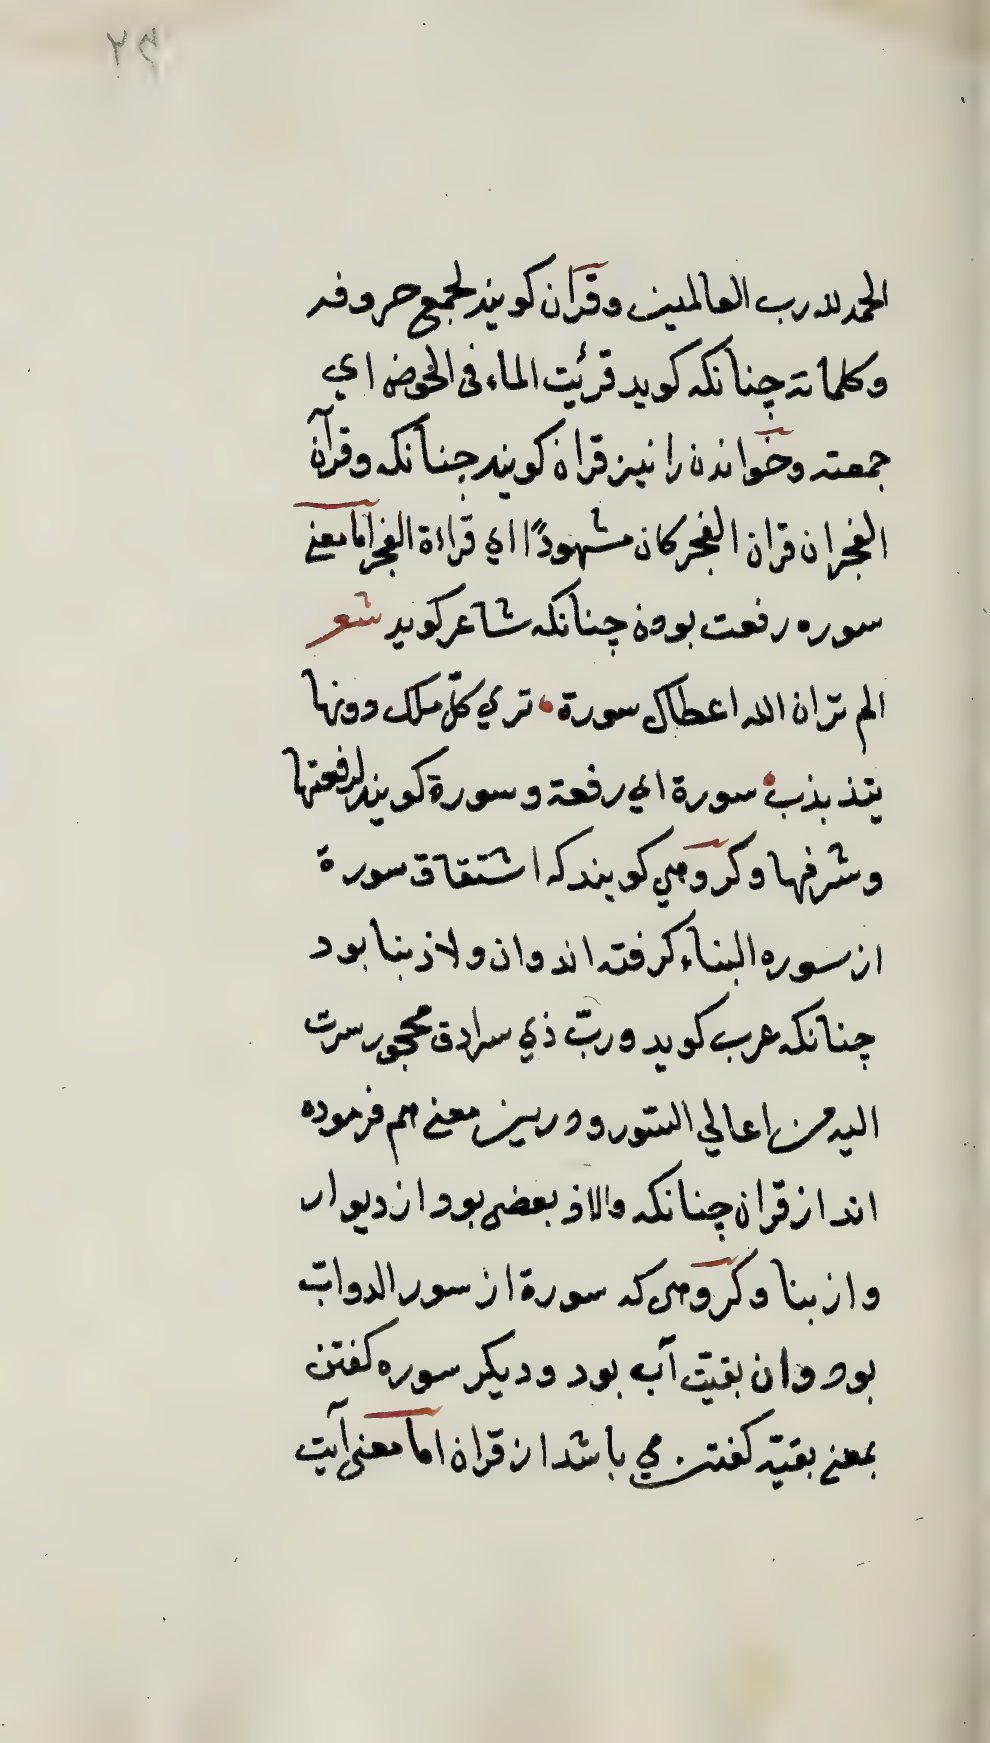 ۲۴
الحمد لله رب العالمین وقرآن کویند لجمع حروفه
وکلماته چنانکه کوید قرئیت الماء فی الحوض ای
جمعته وخواندن را نیز قران کویند چنانکه وقرآن
الفجر ان قران الفجر کان مشهودًا ای قراءة الفجر اما معنی
سوره رفعت بوده چنانکه شاعر کوید شعر
الم تران الله اعطاک سورة تری کلّ ملک دونها
یتذبذب سورة ای رفعة وسورة کویند لرفعتها
وشرفها وکروهی کویند که اشتقاق سورة
از سوره البناء کرفته اند وان ولاذ بنا بود
چنانکه عرب کوید وربّ ذی سرادق محجور سرت
الیه من اعالی السّور ودرین معنی هم فرموده
اند از قران چنانکه والاذ بعضی بود از دیوار
واز بنا وکروهی که سورة از سور الدواب
بود وان بقیّت آب بود ودیکر سوره کفتن
بمعنی بقیّه کفتن می باشد از قران اما معنی آیت